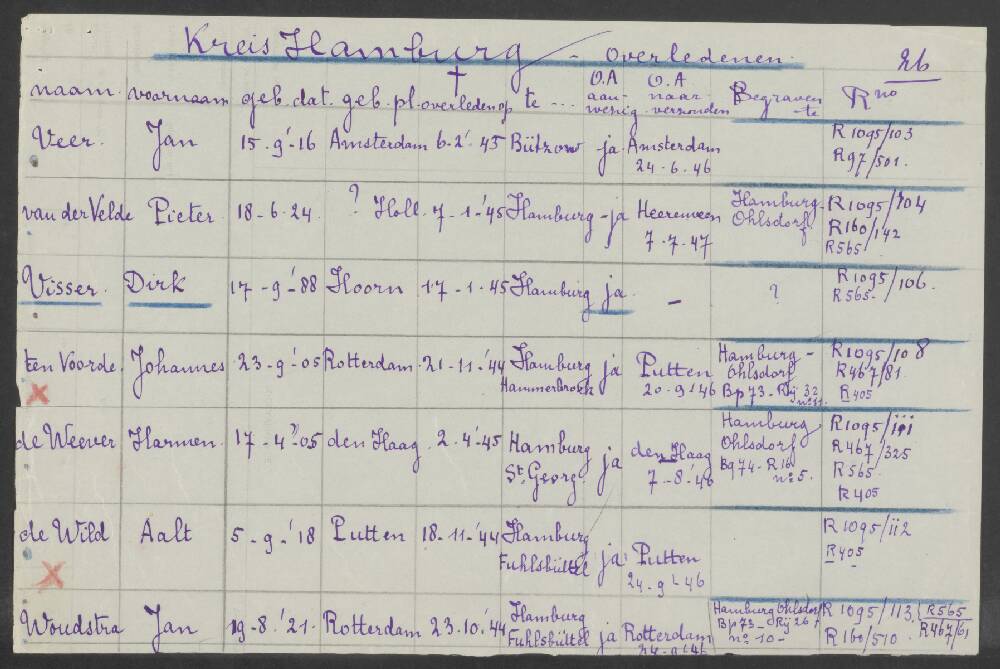 Kreis Hamburg - overledenen. 26
naam. voornaam geb. dat. geb. pl. † overleden op te ... O.A aan- wezig O.A. naar verzonden Begraven te R no
Veer. Jan 15-9-'16 Amsterdam 6-2-'45 Bützow ja Amsterdam 24-6-46 R 1095/103 R97/501.
van der Velde Pieter 18-6-24. ? Holl. 7-1-'45 Hamburg - ja Heerenveen 7-7-47 Hamburg- Ohlsdorf R 1095/104 R160/142 R565
Visser. Dirk 17-9-'88 Hoorn 17-1-45 Hamburg ja - ? R 1095/106. R565-
ten Voorde Johannes 23-9-'05 Rotterdam 21-11-'44 Hamburg Hammerbrook ja Putten 20-9-'46 Hamburg- Ohlsdorf Bp73-Rij 32 no 11. R1095/108 R467/81. R405
de Weever Harmen. 17-4?-05 den Haag 2-4-'45 Hamburg St. Georg. ja den Haag 7-8-'46 Hamburg Ohlsdorf Bq74-R16 no 5. R1095/111 R467/325 R565 R405
de Wild Aalt 5-9-'18 Putten 18-11-'44 Hamburg Fuhlsbüttel ja Putten 24-9-'46 R1095/112 R405
Woudstra Jan 19-8-'21. Rotterdam 23-10-'44 Hamburg Fuhlsbüttel ja Rotterdam 24-9-'46 Hamburg Ohlsdorf Bp73-Rij 26 no 10- R 1095/113. R160/510. R565 R467/61